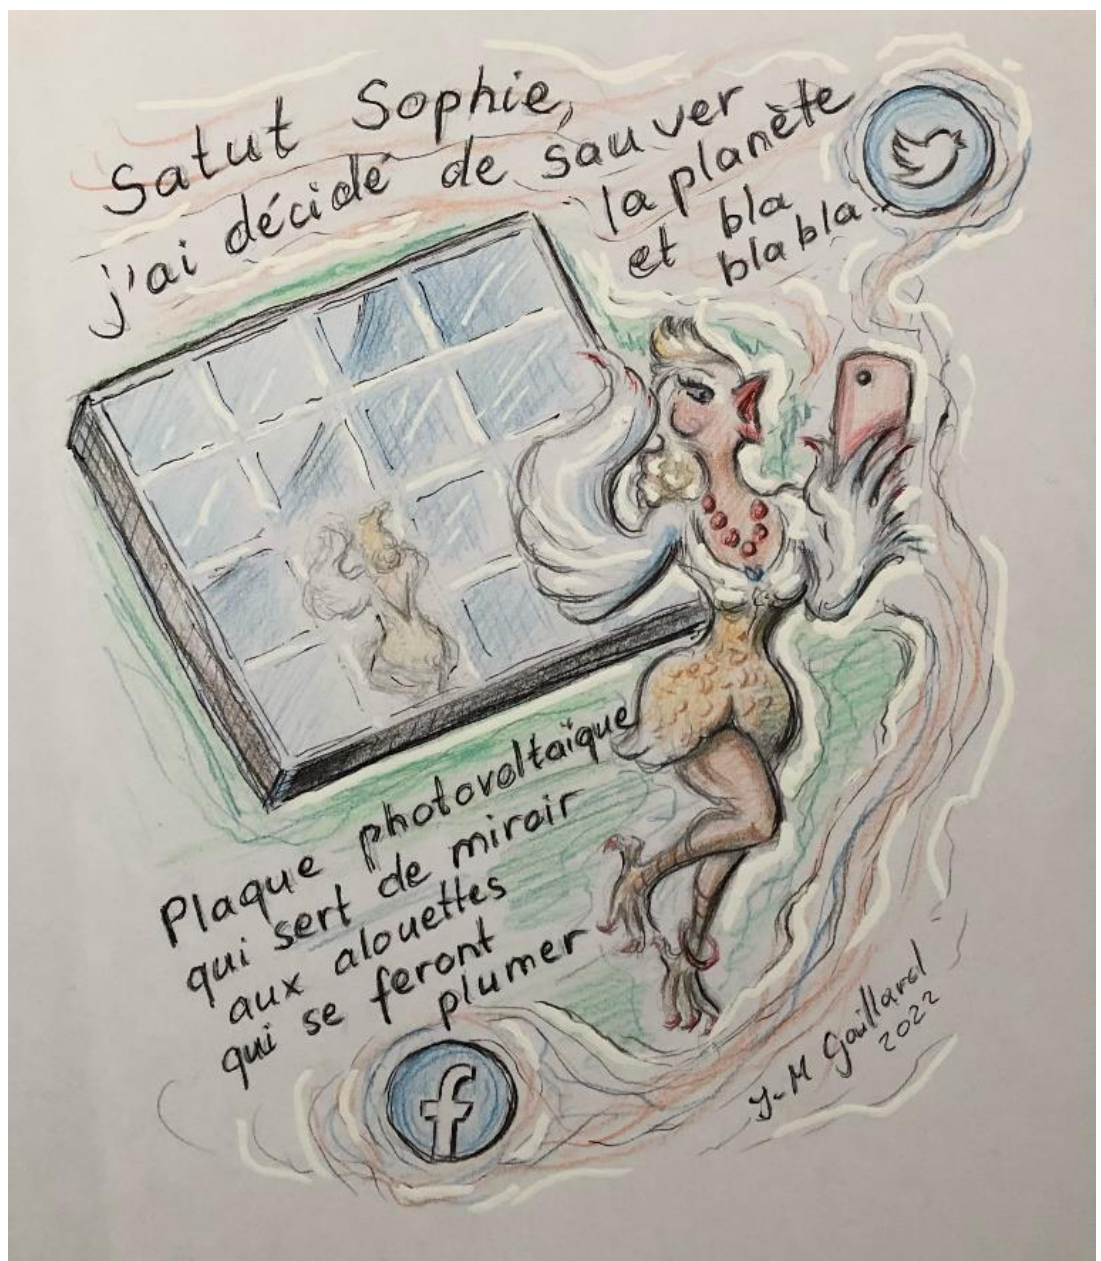 Satut Sophie,
j'ai décidé de sauver
la planète
et bla
bla bla...
Plaque photovoltaïque
qui sert de miroir
aux alouettes
qui se feront
plumer
f
J-M Gaillard
2022